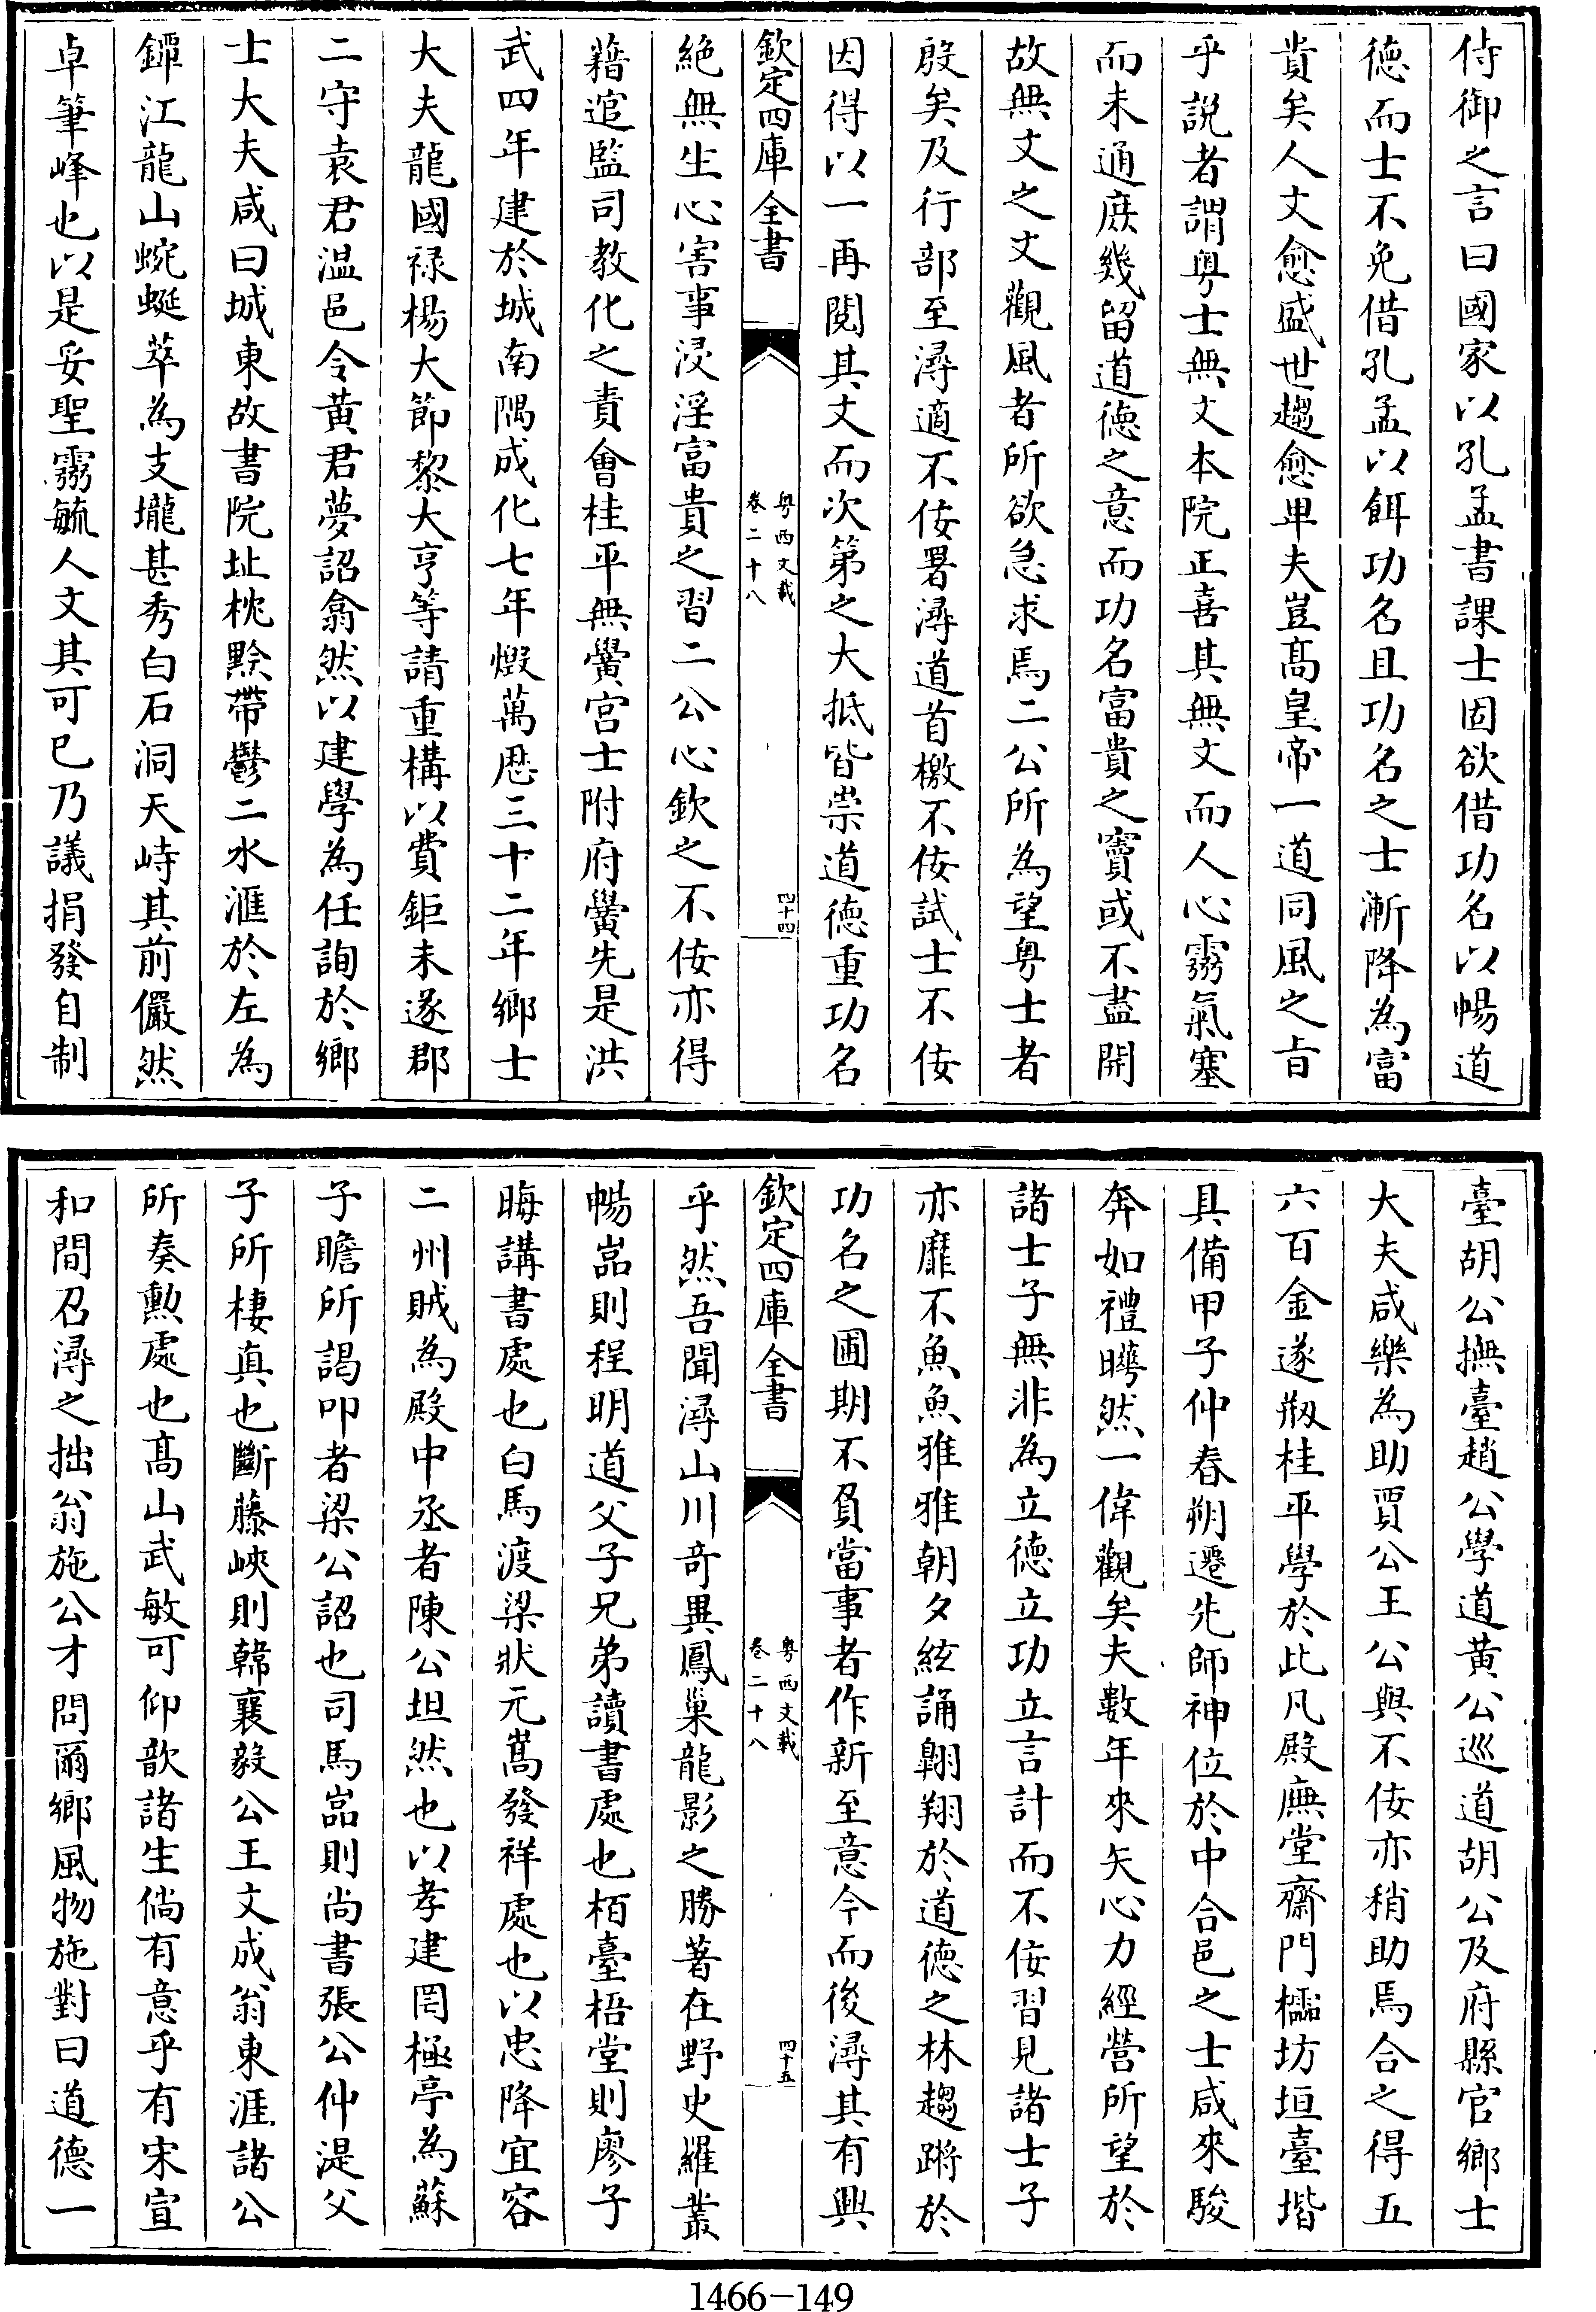 侍御之言曰國家以孔孟書課士固欲借功名以暢道
德而士不免借孔孟以餌功名且功名之士漸降為富
貴矣人文愈盛世趨愈卑夫豈髙皇帝一道同風之㫖
乎説者謂粤士無文本院正喜其無文而人心霧氣塞
而未通庶幾留道徳之意而功名富貴之竇或不盡開
故無文之文觀風者所欲急求焉二公所為望粤士者
殷矣及行部至潯適不佞署潯道首檄不佞試士不佞
因得以一再閲其文而次第之大抵皆崇道德重功名
欽定四庫全書
粤西文載
卷二十八
四十四
絶無生心害事浸淫富貴之習二公心欽之不佞亦得
藉逭監司教化之責會桂平無黌宫士附府黌先是洪
武四年建於城南隅成化七年燬萬厯三十二年鄉士
大夫龍國禄楊大節黎大亨等請重構以費鉅未遂郡
二守袁君温邑令黄君夢詔翕然以建學為任詢於鄉
士大夫咸曰城東故書院址枕黔帶鬱二水滙於左為
鐔江龍山蜿蜒萃為支壠甚秀白石洞天峙其前儼然
卓筆峰也以是妥聖靈毓人文其可已乃議捐發自制
臺胡公撫臺趙公學道黄公巡道胡公及府縣官鄉士
大夫咸樂為助賈公王公與不佞亦稍助焉合之得五
六百金遂剏桂平學於此凡殿廡堂齋門櫺坊垣臺堦
具備甲子仲春朔遷先師神位於中合邑之士咸來駿
奔如禮瞱然一偉觀矣夫數年來矢心力經營所望於
諸士子無非為立德立功立言計而不佞習見諸士子
亦靡不魚魚雅雅朝夕絃誦翺翔於道德之林趨蹌於
功名之圃期不負當事者作新至意今而後潯其有興
欽定四庫全書
粤西文載
卷二十八
四十五
乎然吾聞潯山川奇異鳳巢龍影之勝著在野史羅叢
暢嵓則程明道父子兄弟讀書處也栢臺梧堂則廖子
晦講書處也白馬渡梁狀元嵩發祥處也以忠降宜容
二州賊為殿中丞者陳公坦然也以孝建罔極亭為蘇
子瞻所謁叩者梁公詔也司馬嵓則尚書張公仲湜父
子所棲真也斷藤峽則韓襄毅公王文成翁東涯諸公
所奏勲處也髙山武敏可仰歆諸生倘有意乎有宋宣
和間召潯之拙翁施公才問爾鄉風物施對曰道德一
1466-149